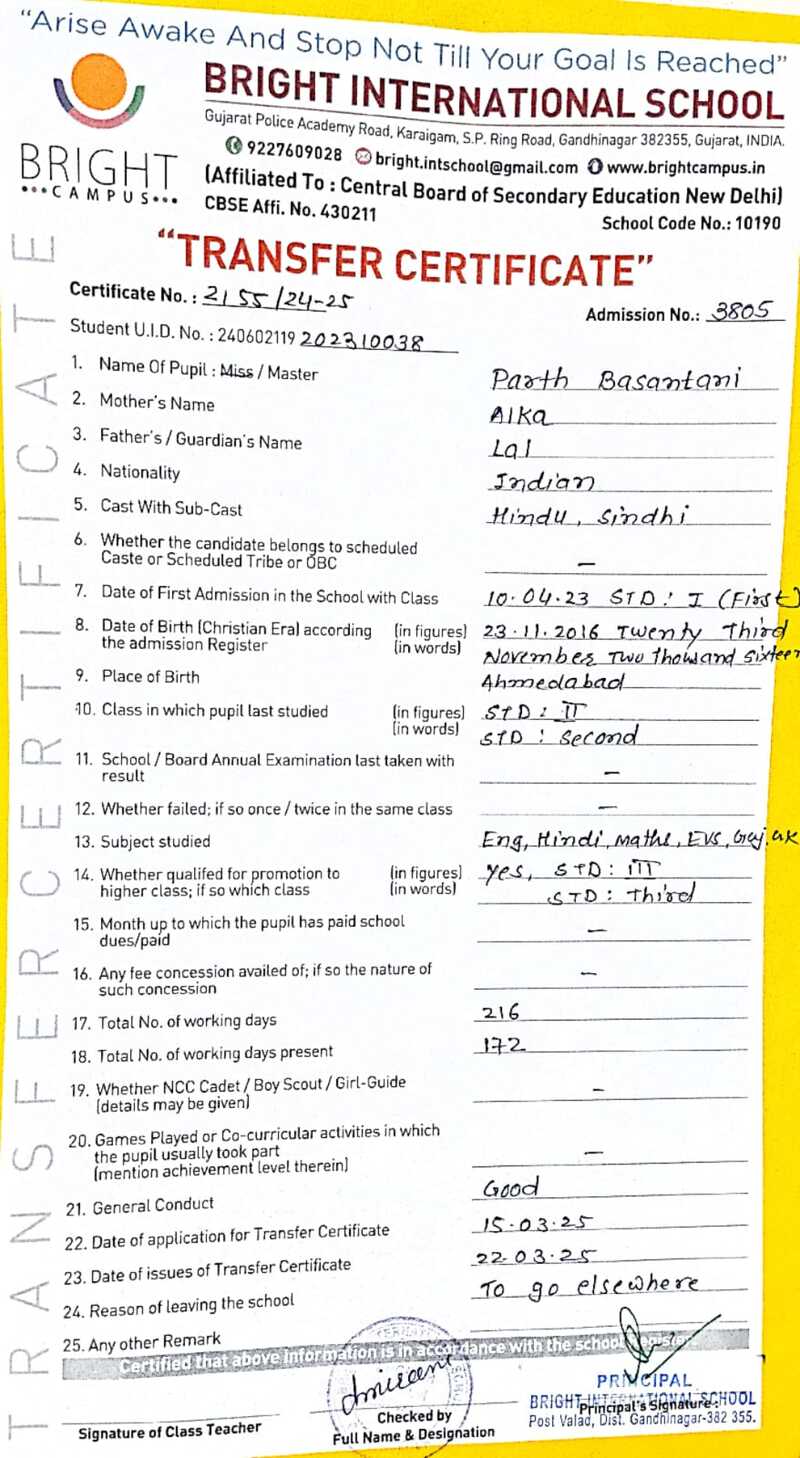 “Arise Awake And Stop Not Till Your Goal Is Reached”
BRIGHT
•••CAMPUS•••
BRIGHT INTERNATIONAL SCHOOL
Gujarat Police Academy Road, Karaigam, S.P. Ring Road, Gandhinagar 382355, Gujarat, INDIA.
9227609028 bright.intschool@gmail.com www.brightcampus.in
(Affiliated To : Central Board of Secondary Education New Delhi)
CBSE Affi. No. 430211
School Code No.: 10190
“TRANSFER CERTIFICATE”
Certificate No. : 2155/24-25
Admission No.: 3805
Student U.I.D. No. : 240602119 202310038
1. Name Of Pupil : Miss / Master Parth Basantani
2. Mother's Name Alka
3. Father's / Guardian's Name Lal
4. Nationality Indian
5. Cast With Sub-Cast Hindu, Sindhi
6. Whether the candidate belongs to scheduled
Caste or Scheduled Tribe or OBC –
7. Date of First Admission in the School with Class 10.04.23 STD: I (First)
8. Date of Birth (Christian Era) according (in figures) 23.11.2016 Twenty Third
the admission Register (in words) November Two thousand sixteen
9. Place of Birth Ahmedabad
10. Class in which pupil last studied (in figures) STD: II
(in words) STD: Second
11. School / Board Annual Examination last taken with
result –
12. Whether failed; if so once / twice in the same class –
13. Subject studied Eng, Hindi, Maths, EVS, Guj, GK
14. Whether qualifed for promotion to (in figures) Yes, STD: III
higher class; if so which class (in words) STD: Third
15. Month up to which the pupil has paid school
dues/paid –
16. Any fee concession availed of; if so the nature of
such concession –
17. Total No. of working days 216
18. Total No. of working days present 172
19. Whether NCC Cadet / Boy Scout / Girl-Guide
(details may be given) –
20. Games Played or Co-curricular activities in which
the pupil usually took part
(mention achievement level therein) –
21. General Conduct Good
22. Date of application for Transfer Certificate 15.03.25
23. Date of issues of Transfer Certificate 22.03.25
24. Reason of leaving the school To go elsewhere
25. Any other Remark
Certified that above information is in accordance with the school register
PRINCIPAL
BRIGHT INTERNATIONAL SCHOOL
Principal's Signature:
Post Valad, Dist. Gandhinagar-382 355.
Signature of Class Teacher
Checked by
Full Name & Designation
TRANSFER CERTIFICATE